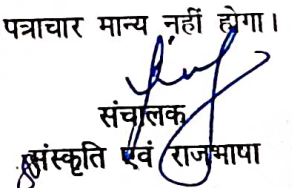 पत्राचार मान्य नहीं होगा।
संचालक
संस्कृति एवं राजभाषा